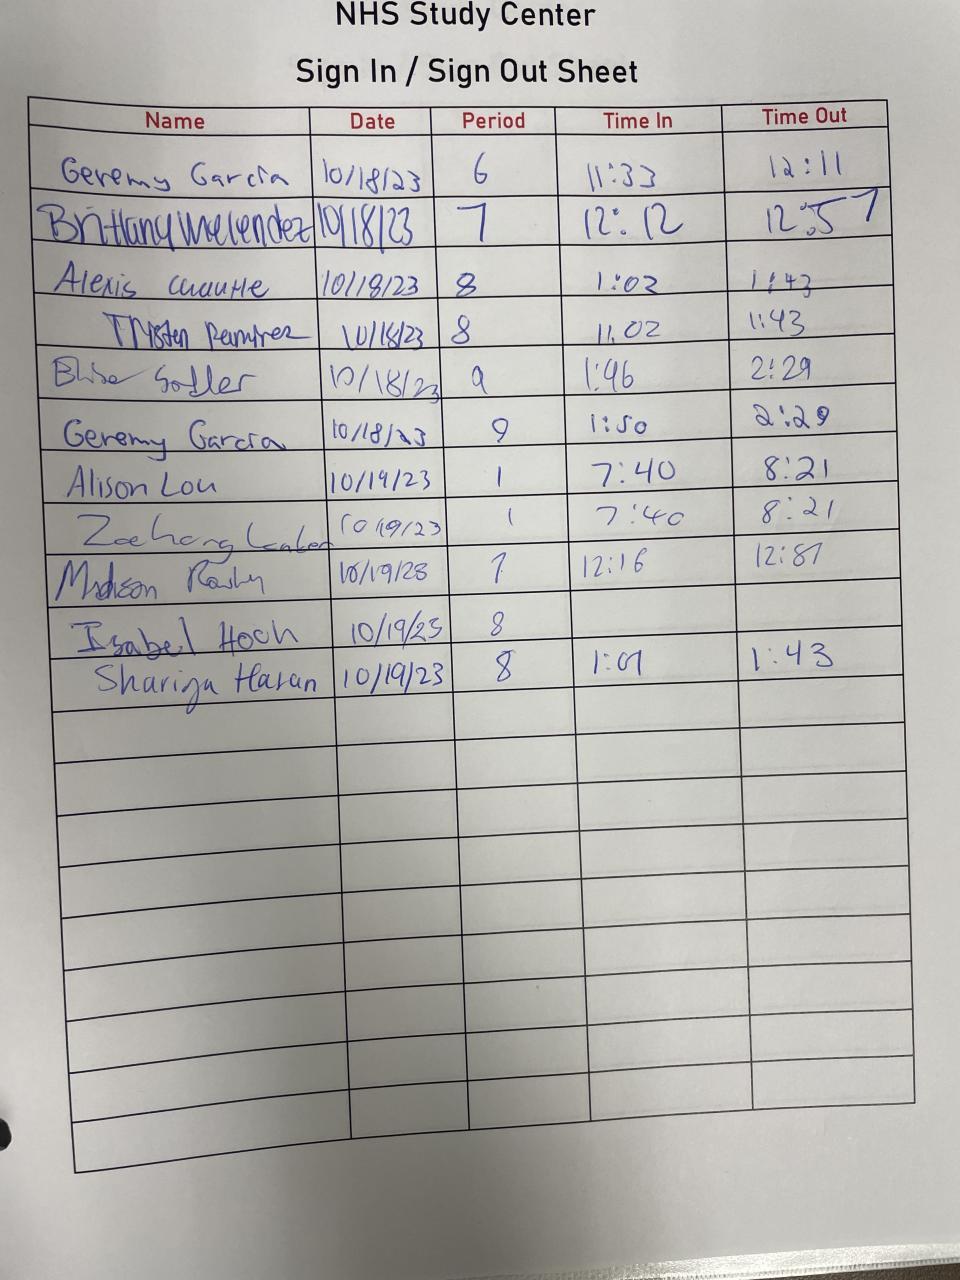 NHS Study Center
Sign In / Sign Out Sheet
Name Date Period Time In Time Out
Geremy Garcia 10/18/23 6 11:33 12:11
Brittany Melendez 10/18/23 7 12:12 12:57
Alexis 10/18/23 8 1:02 1:43
Tristen Ramirez 10/18/23 8 11:02 1:43
10/18/23 9 1:46 2:29
Geremy Garcia 10/18/23 9 1:50 2:29
Alison Lou 10/19/23 1 7:40 8:21
10/19/23 1 7:40 8:21
Madison 10/19/23 7 12:16
Isabel Hoch 10/19/23 8
Shariga Haran 10/19/23 8 1:01 1:43